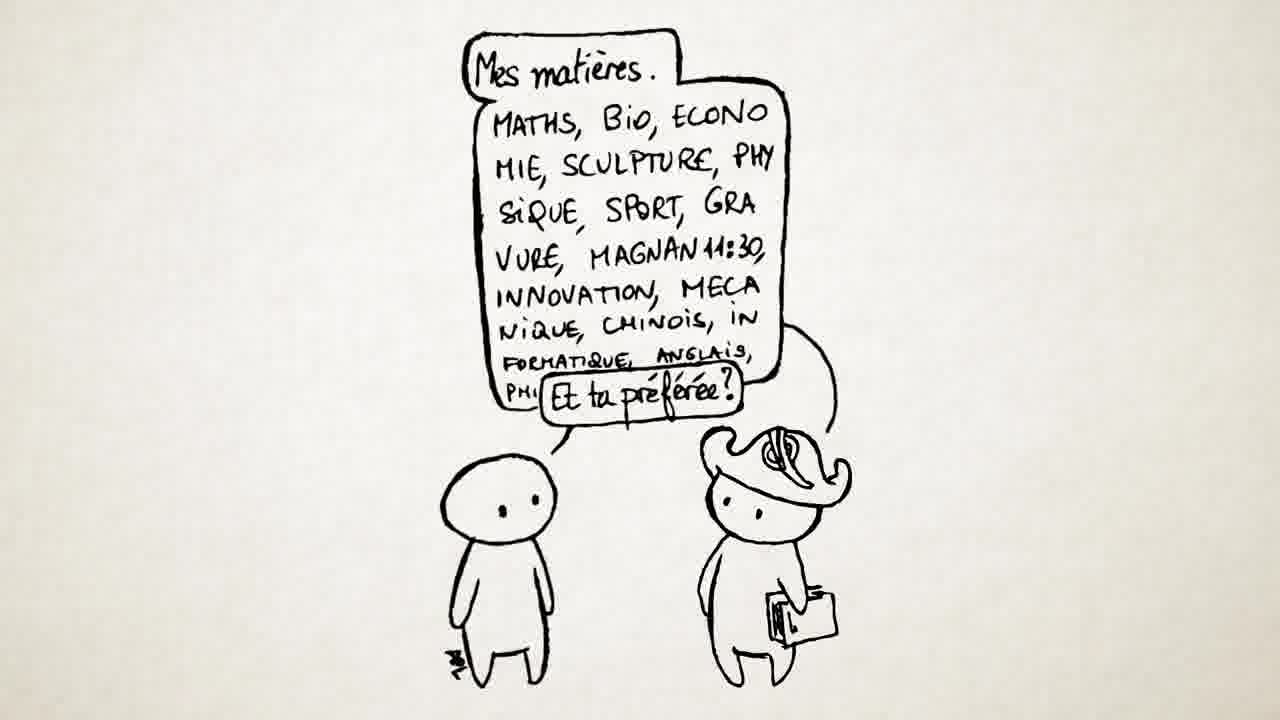 Mes matières.
MATHS, BiO, ECONO
MIE, SCULPTURE, PHY
SiQUE, SPORT, GRA
VURE, MAGNAN 11:30,
INNOVATION, MECA
NiQUE, CHINOiS, iN
FORMATiQUE, ANGLAiS,
PHi
Et ta préférée?